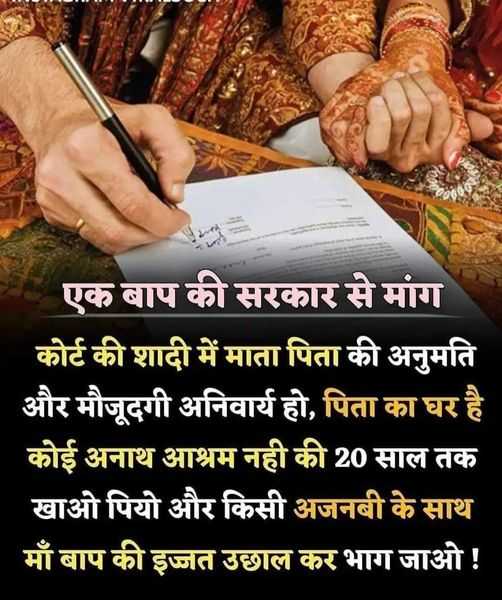 एक बाप की सरकार से मांग
कोर्ट की शादी में माता पिता की अनुमति
और मौजूदगी अनिवार्य हो, पिता का घर है
कोई अनाथ आश्रम नही की 20 साल तक
खाओ पियो और किसी अजनबी के साथ
माँ बाप की इज्जत उछाल कर भाग जाओ !